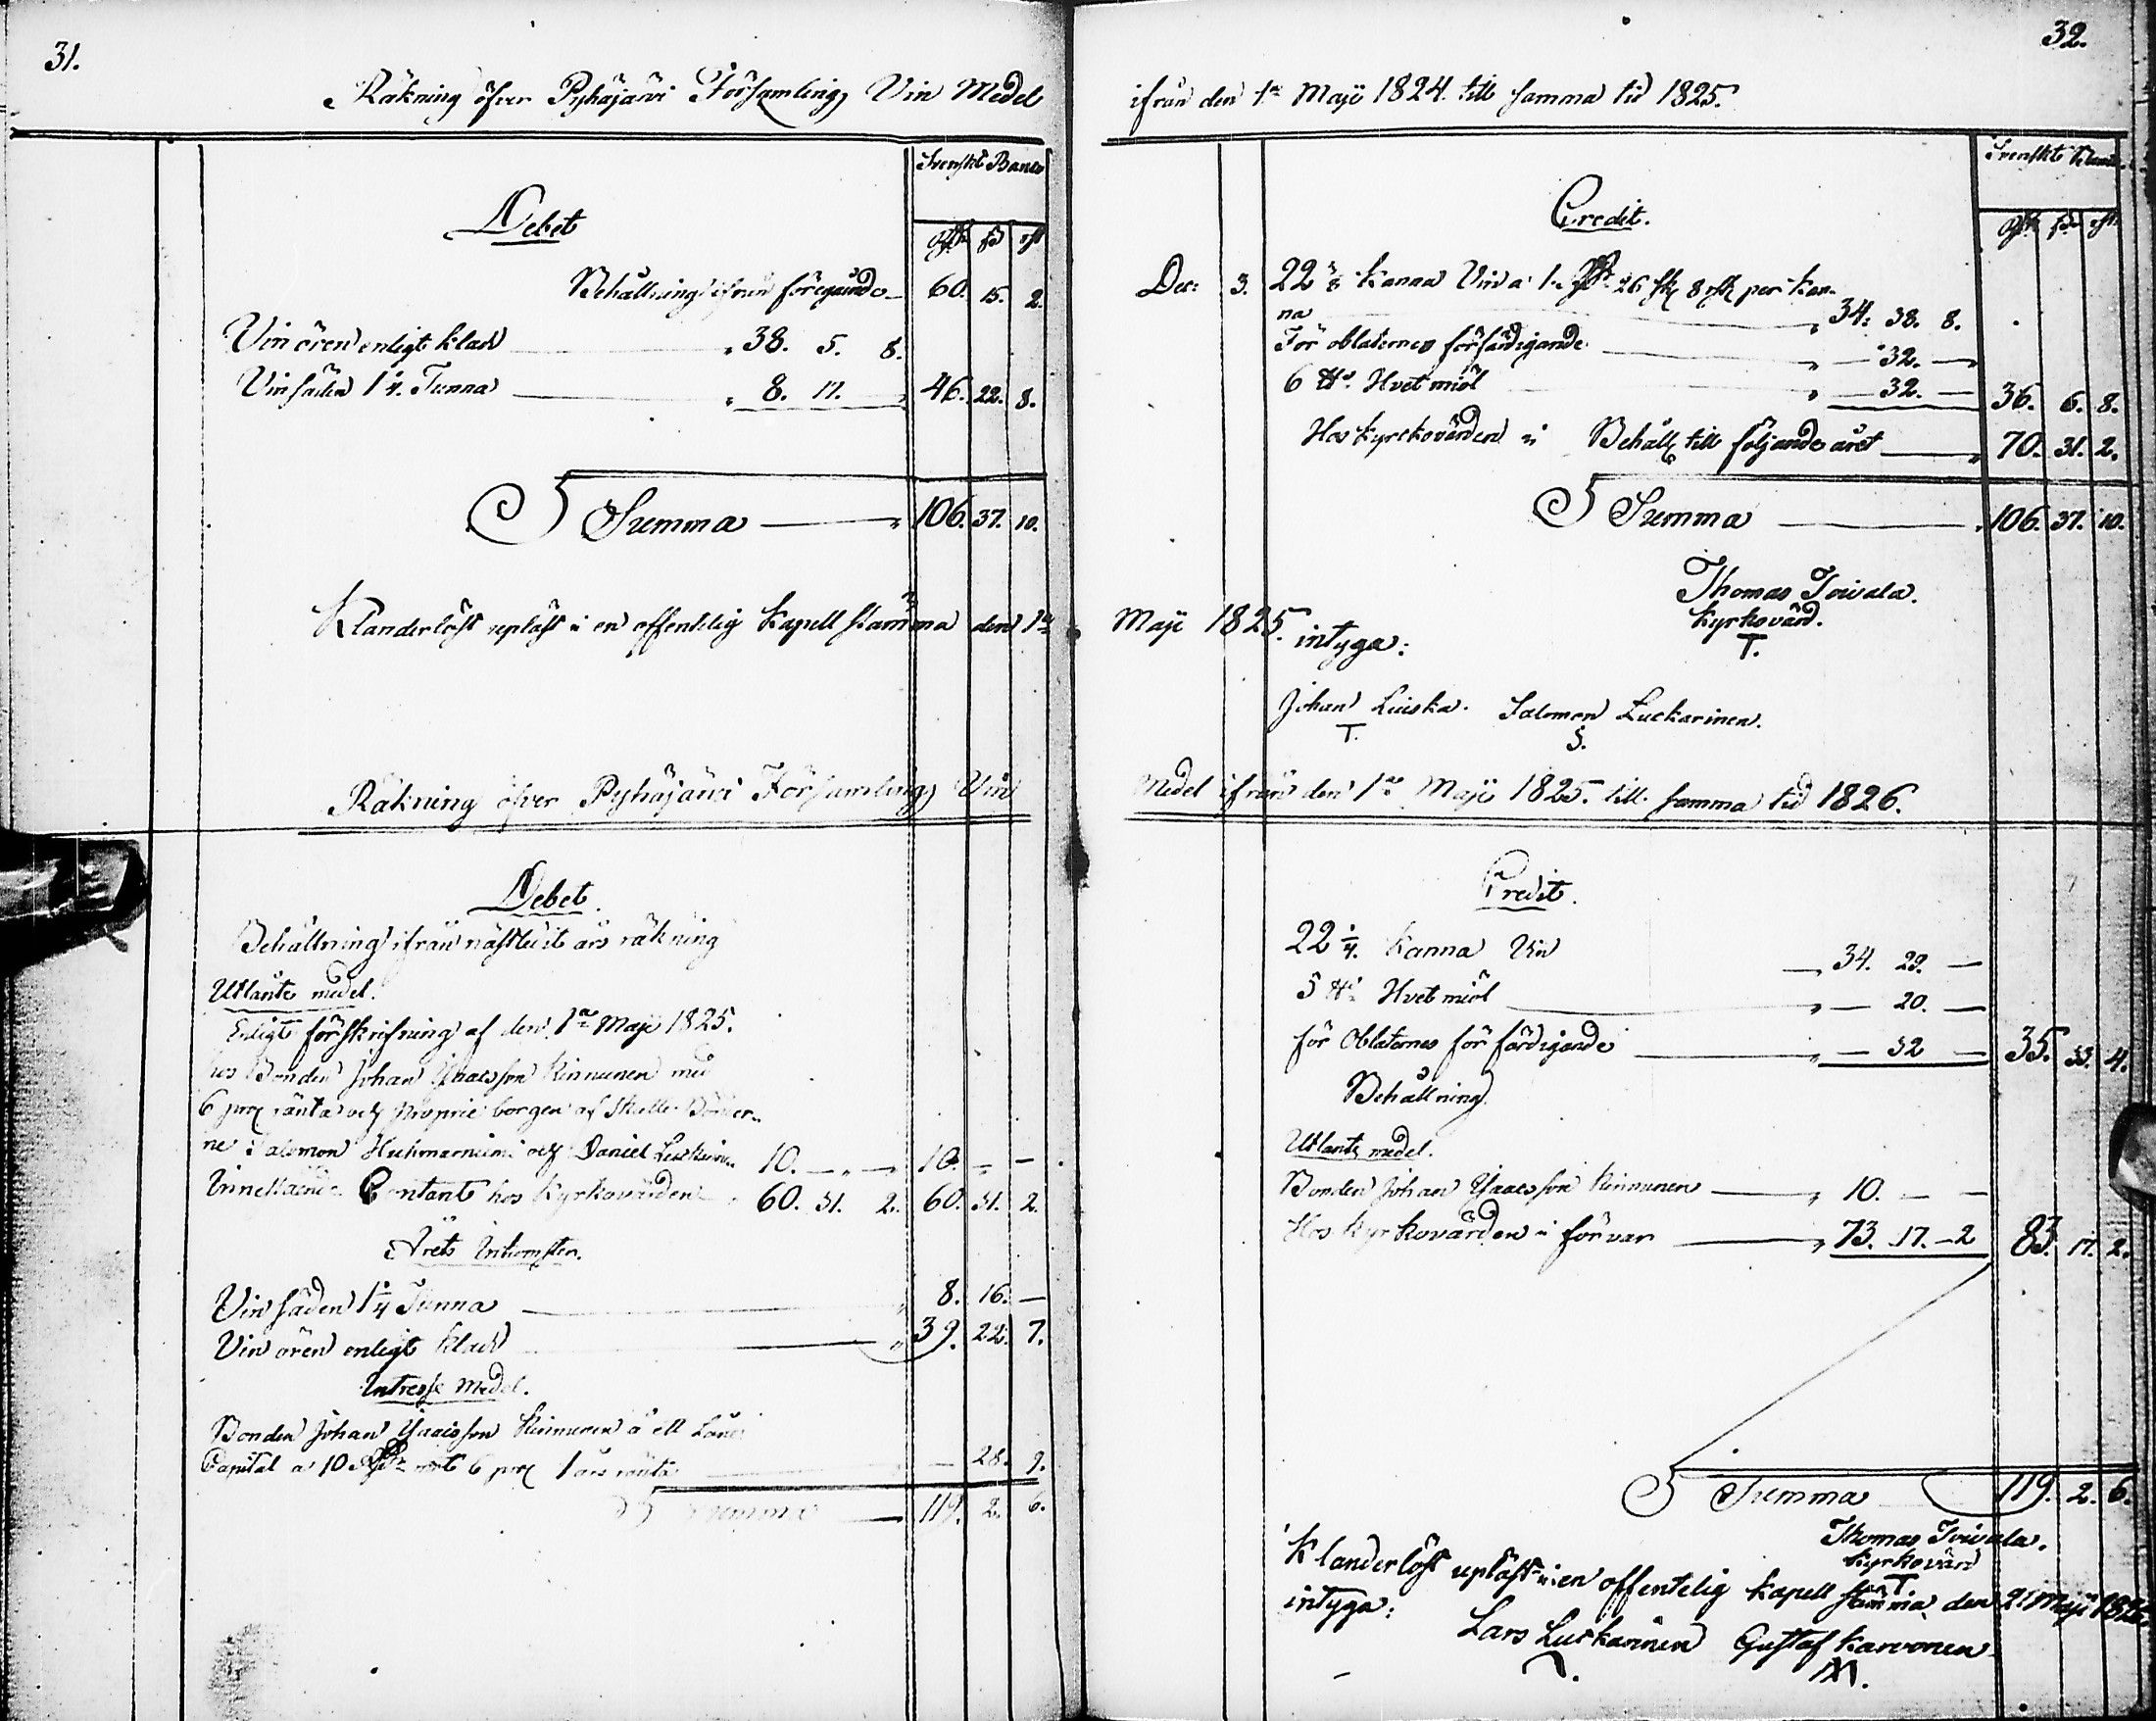 31.
Räkning öfver Pyhäjärvi Församling, Vin Medel
Svenskt Banco
Debet
Rdr sk rst
Behållning ifrån föregående 60. 15. 2.
Vin ören enligt klad 38. 5. 8.
Vin säden 1 1/4. Tunna 8. 17. 46. 22. 8.
Summa 106. 37. 10.
Klanderlöst upläst i en offentelig Kapell stämma den 1a
Räkning öfver Pyhäjärvi Församling, Vin
Debet.
Behållning ifrån nästledit års räkning
Utlånte medel.
Enligt förskrifning af den 1a Maji 1825.
hos Bonden Johan Isacsson Kinnunen med
6 proc ränta och proprie borgen af
ne Salomon Huhmarniemi och Daniel
10. — — 10. — —
Innestående Contant hos Kyrkovärden 60. 31. 2. 60. 31. 2.
Årets Inkomster.
Vin säden 1 1/4 Tunna 8. 16. —
Vin ören enligt klad 39. 22. 7.
Intresse Medel.
Bonden Johan Isacsson Kinnunen å ett Lånt
Capital a 10 Rdr mot 6 proc 1 års ränta — 28. 9.
Summa 119. 2. 6.
32.
ifrån den 1a Maji 1824. till samma tid 1825.
Svenskt Banco
Credit.
Rdr sk rst
Dec: 3. 22 1/8 Kanna Vin a 1. Rdr 26 sk 8 rst per Kan-
na 34. 38. 8.
För oblaternes förfärdigande — 32. —
6 ℔ Hvet miöl — 32. — 36. 6. 8.
Hos Kyrckovärden i Behåll till följande året 70. 31. 2.
Summa 106. 37. 10.
Thomas Toivala.
Kyrkovärd.
T.
Maji 1825. intyga:
Johan Liuska. Salomon Luckarinen.
T. S.
Medel ifrån den 1a Maji 1825. till samma tid 1826.
Credit.
22 1/4. Kanna Vin 34. 29. —
5 ℔ Hvet miöl — 20. —
för Oblaternes för färdigande — 32 — 35. 33. 4.
Behållning
Utlante medel.
Bonden Johan Isacsson Kinnunen 10. — —
Hos Kyrkovärden i förvar 73. 17. 2 83. 17. 2.
Summa 119. 2. 6.
Thomas Toivala.
Kyrkovärd
T.
Klanderlöst upläst i en offentelig Kapell stämma den 2 Maji 1826
intyga:
Lars Luckarinen Gustaf Karvonen